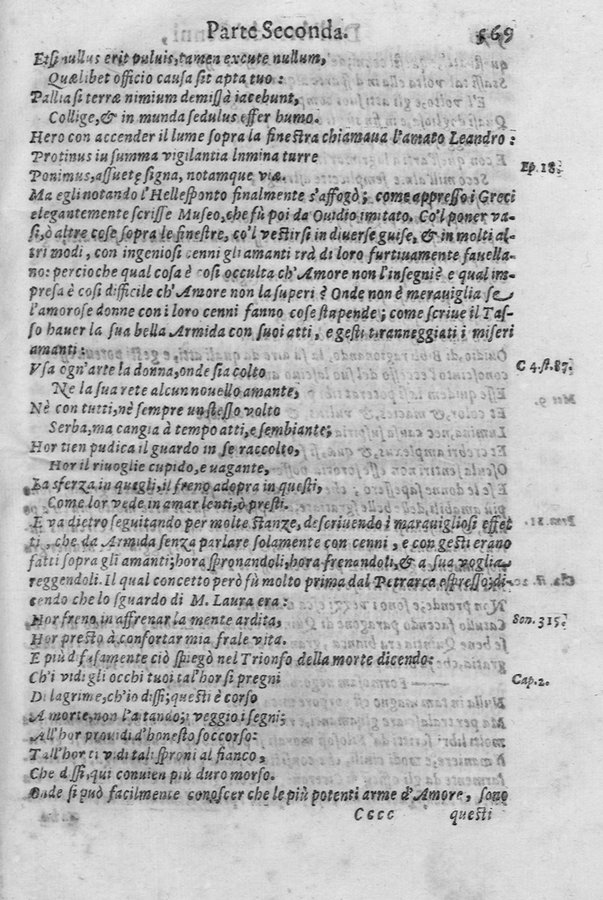 Parte Seconda. 569
Etsi nullus erit puluis, tamen excute nullum,
Quælibet officio causa sit apta tuo:
Pallia si terræ nimium demissa iacebunt,
Collige, & in munda sedulus effer humo.
Hero con accender il lume sopra la finestra chiamaua l'amato Leandro:
Protinus in summa vigilantia lumina turre
Ponimus, assuetę signa, notamque viæ. Ep. 18.
Ma egli notando l'Hellesponto finalmente s'affogò; come appresso i Greci
elegantemente scrisse Museo, che fù poi da Ouidio imitato. Co'l poner va-
si, ò altre cose sopra le finestre, co'l vestirsi in diuerse guise, & in molti al-
tri modi, con ingeniosi cenni gli amanti trà di loro furtiuamente fauella-
no: percioche qual cosa è così occulta ch'Amore non l'insegni? e qual im-
presa è così difficile ch'Amore non la superi? Onde non è merauiglia se
l'amorose donne con i loro cenni fanno cose stupende; come scriue il Tas-
so hauer la sua bella Armida con suoi atti, e gesti tiranneggiati i miseri
amanti:
Vsa ogn'arte la donna, onde sia colto C 4. st. 87.
Ne la sua rete alcun nouello amante,
Nè con tutti, nè sempre un stesso volto
Serba, ma cangia à tempo atti, e sembiante;
Hor tien pudica il guardo in se raccolto,
Hor il riuoglie cupido, e vagante,
La sferza in quegli, il freno adopra in questi,
Come lor vede in amar lenti, ò presti.
E và dietro seguitando per molte stanze, descriuendo i marauigliosi effet
ti, che da Armida senza parlare solamente con cenni, e con gesti erano
fatti sopra gli amanti; hora spronandoli, hora frenandoli, & a sua voglia
reggendoli. Il qual concetto però fù molto prima dal Petrarca espresso; di-
cendo che lo sguardo di M. Laura era:
Hor freno in affrenar la mente ardita, Son. 315.
Hor presto à confortar mia frale vita.
E più difusamente ciò spiegò nel Trionfo della morte dicendo:
Ch'i vidi gli occhi tuoi tal'hor si pregni Cap. 2.
Di lagrime, ch'io dissi; questi è corso
A morte, non l'aitando; i veggio i segni;
All'hor prouidi d'honesto soccorso:
Tall'hor ti vidi tali sproni al fianco,
Che dissi, qui conuien più duro morso.
Onde si può facilmente conoscer che le più potenti arme d'Amore, sono
Cccc questi